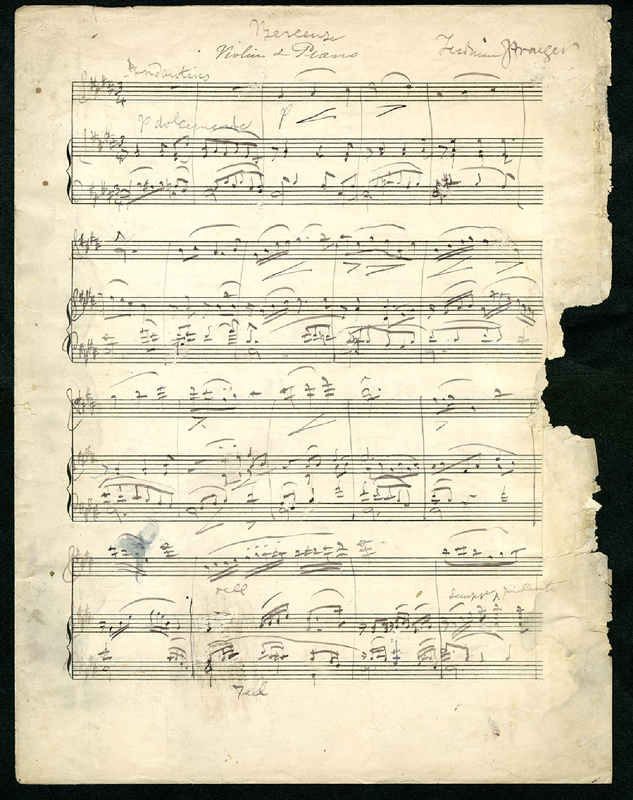 Berceuse
Violin & Piano
Ferdinand Praeger
Andantino
3
4
p dolcemente
p
rall
sempre p
rall